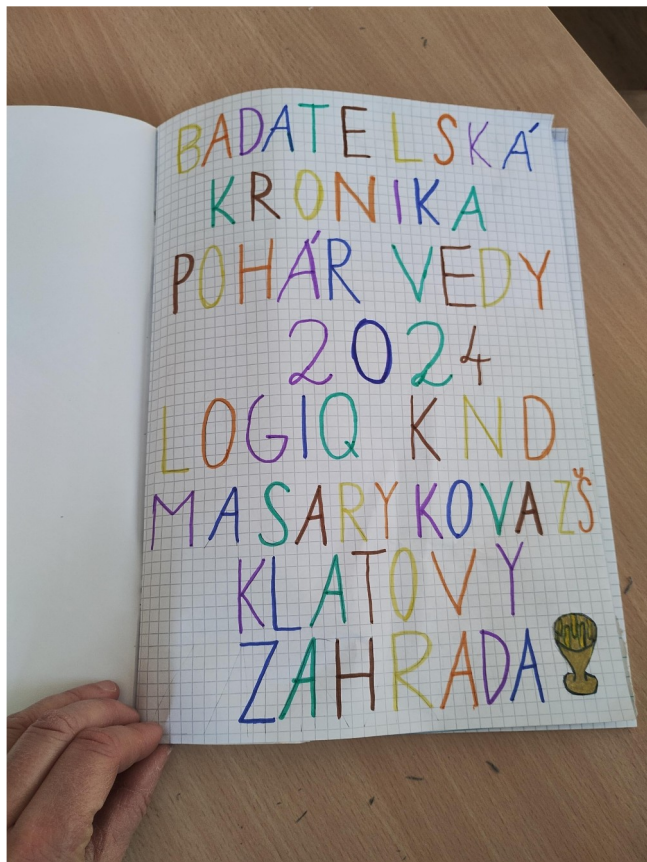 BADATELSKÁ
KRONIKA
POHÁR VEDY
2024
LOGIQ KND
MASARYKOVA ZŠ
KLATOVY
ZAHRADA